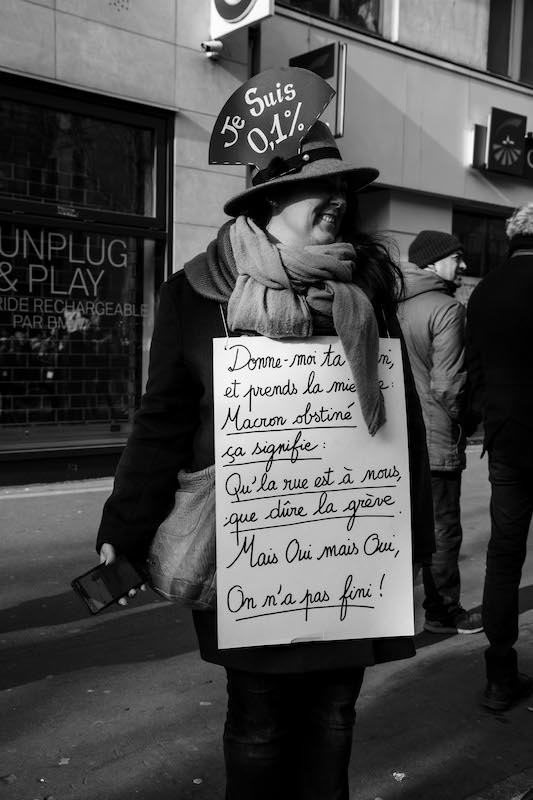 Je Suis
0,1%
UNPLUG
& PLAY
RIDE RECHARGEABLE
PAR BMW
Donne-moi ta
et prends la
Macron obstiné
ça signifie :
Qu'la rue est à nous,
que dûre la grève.
Mais Oui mais Oui,
On n'a pas fini !